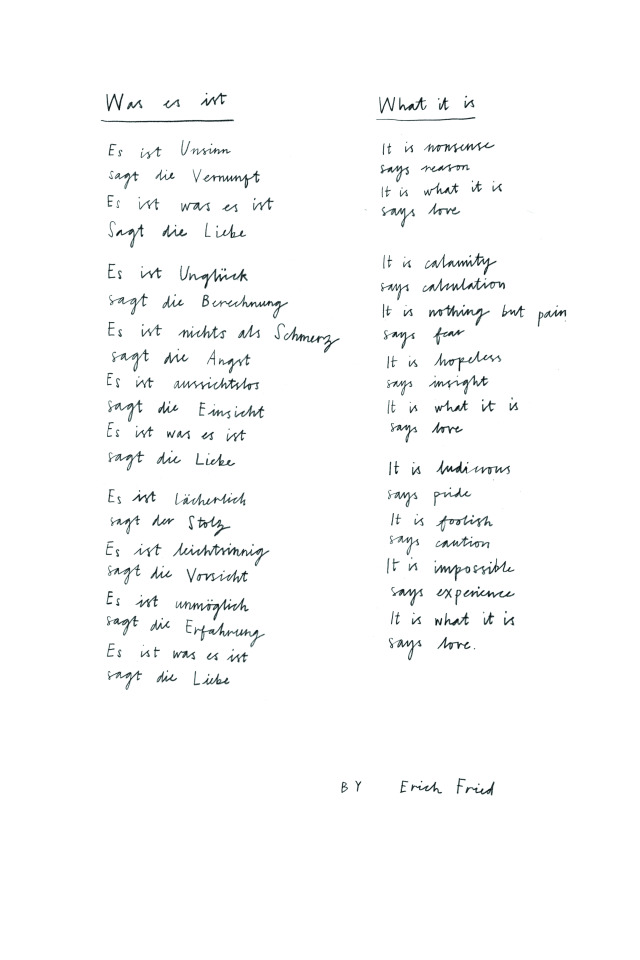 Was es ist
Es ist Unsinn
sagt die Vernunft
Es ist was es ist
Sagt die Liebe
Es ist Unglück
sagt die Berechnung
Es ist nichts als Schmerz
sagt die Angst
Es ist aussichtslos
sagt die Einsicht
Es ist was es ist
sagt die Liebe
Es ist lächerlich
sagt der Stolz
Es ist leichtsinnig
sagt die Vorsicht
Es ist unmöglich
sagt die Erfahrung
Es ist was es ist
sagt die Liebe
What it is
It is nonsense
says reason
It is what it is
says love
It is calamity
says calculation
It is nothing but pain
says fear
It is hopeless
says insight
It is what it is
says love
It is ludicrous
says pride
It is foolish
says caution
It is impossible
says experience
It is what it is
says love.
BY Erich Fried